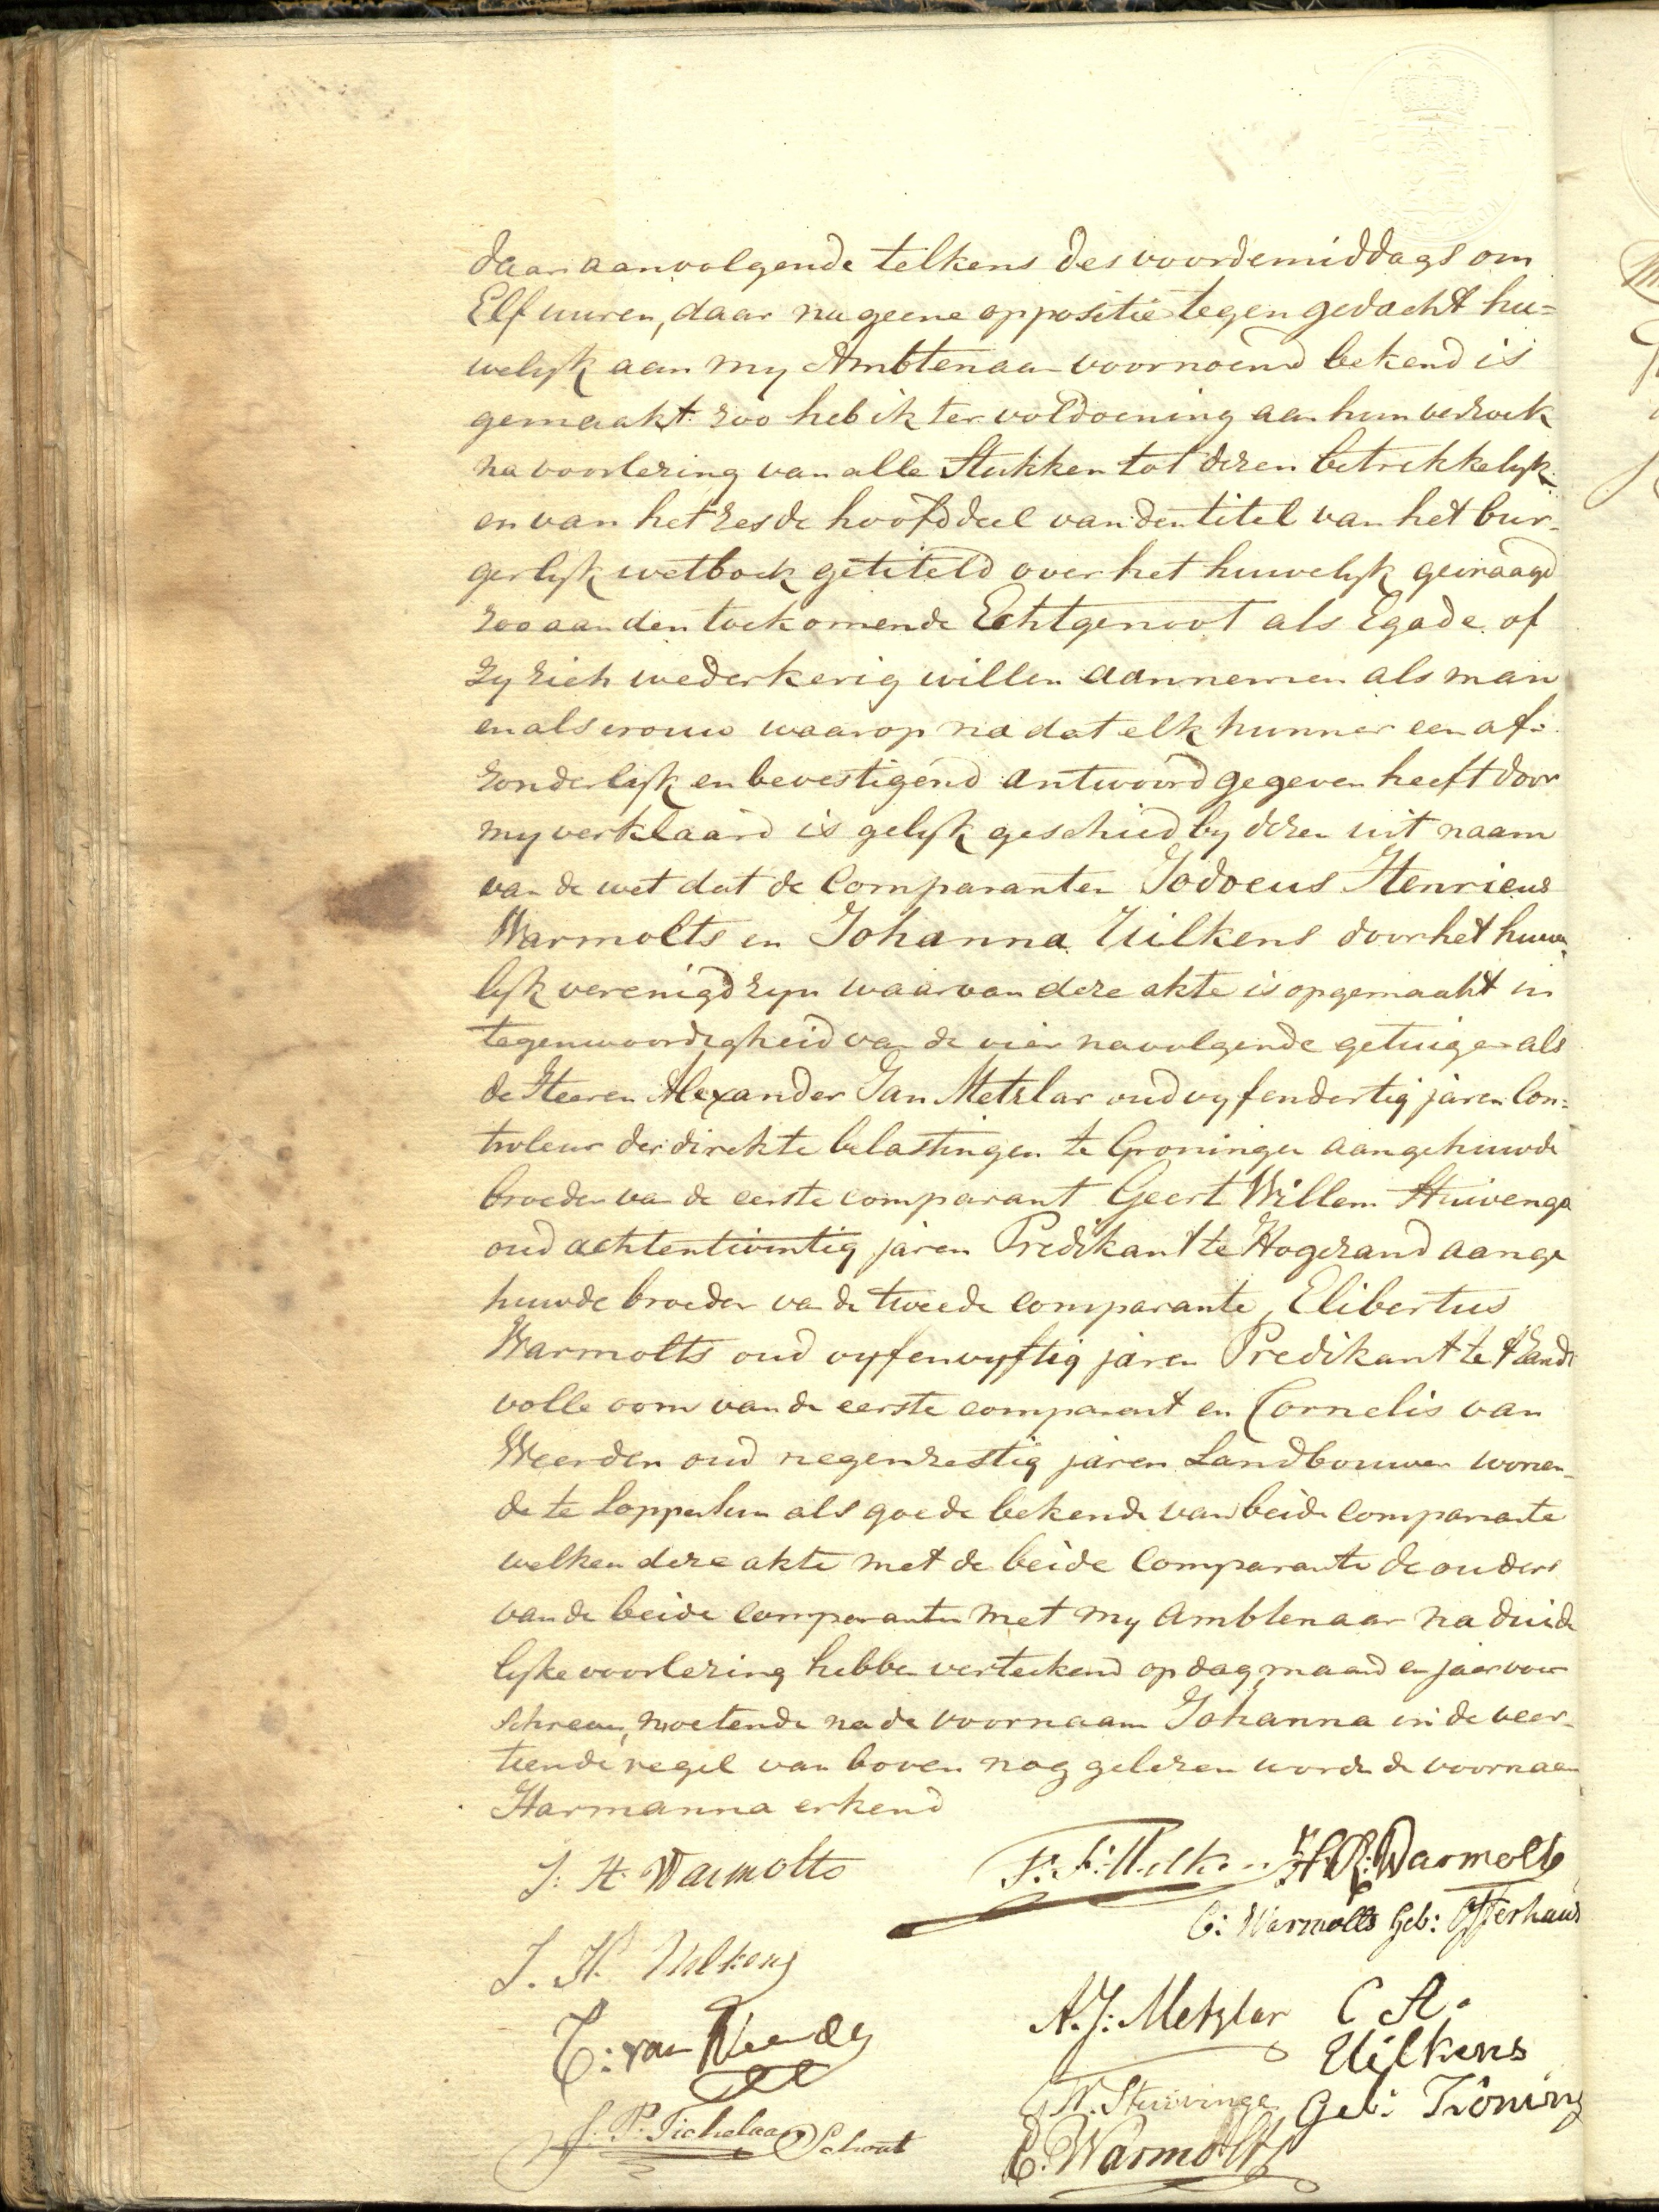 daar aanvolgende telkens des voordemiddags om
Elf uuren, daar nu geene oppositie tegen gedacht hu=
welyk aan my Ambtenaar voornoemd bekend is
gemaakt: zoo heb ik ter voldoening aan hun verzoek
na voorlezing van alle Stukken tot dezen betrekkelyk
en van het zesde hoofddeel van den titel van het bur-
gerlyk wetboek getiteld over het huwelyk gevraagd
zoo aan den toekomende Echtgenoot als Egade of
zy zich wederkerig willen aannemen als man
en als vrouw waarop na dat elk hunner een af=
zonderlyk en bevestigend antwoord gegeven heeft door
my verklaard is gelyk geschied by dezen uit naam
van de wet dat de Comparanten Jodocus Henricus
Warmolts en Johanna Uilkens door het huwe
lyk verenigd zyn waarvan deze akte is opgemaakt in
tegenwoordigheid van de vier navolgende getuigen als
de Heeren Alexander Jan Metzlar oud vyfendertig jaren Con=
troleur der direkte belastingen te Groningen aangehuwde
broeder van de eerste comparant Geert Willem Stuivenga
oud achtentwintig jaren Predikant te Hogezand aange
huwde broeder van de tweede comparante, Elibertus
Warmolts oud vyfenvyftig jaren Predikant te 't Zandt
volle oom van de eerste comparant en Cornelis van
Weerden oud negenzestig jaren Landbouwer wonen-
de te Loppersum als goede bekende van beide comparante
welken deze akte met de beide Comparante de ouders
van de beide comparanten met my Ambtenaar na duide
lyke voorlezing hebben vertekend op dag, maand en jaar voor
schreven, moetende na de voornaam Johanna in de veer-
tiende regel van boven nog gelezen worden de voornaam
Harmanna erkend
J: H: Warmolts
H. R: Warmolts
C: Warmolts Geb: Osterhaus
J. H. Uilkens
A. J: Metzlar C A.
Uilkens
C: van Weerden
G W. Stuivinga Geb: Köning
J. P. Tichelaar Schout
E. Warmolts